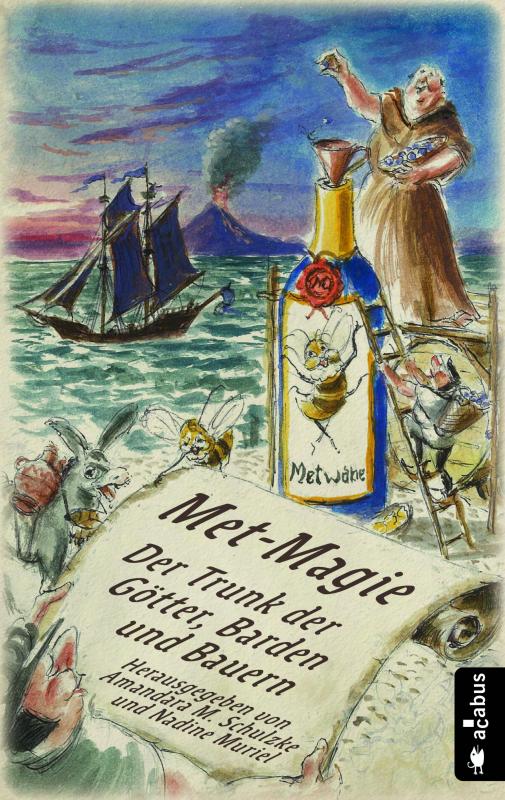 M
Metwabe
Met-Magie
Der Trunk der
Götter, Barden
und Bauern
Herausgegeben von
Amandara M. Schulzke
und Nadine Muriel
acabus